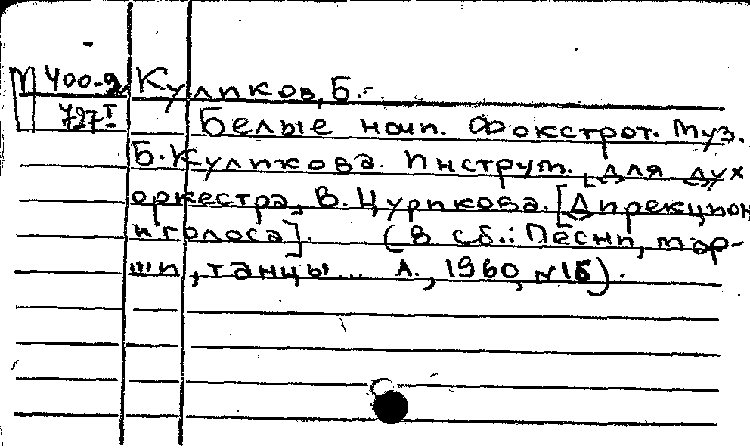 М 400-9 Куликов, Б.-
727I Белые ночи. Фокстрот. Муз.
Б. Куликова. Инструм. [для дух
оркестра, В. Цурикова. [Дирекцион
и голоса]. (В сб.: Песни, мар-
ши, танцы... А., 1960, №15).